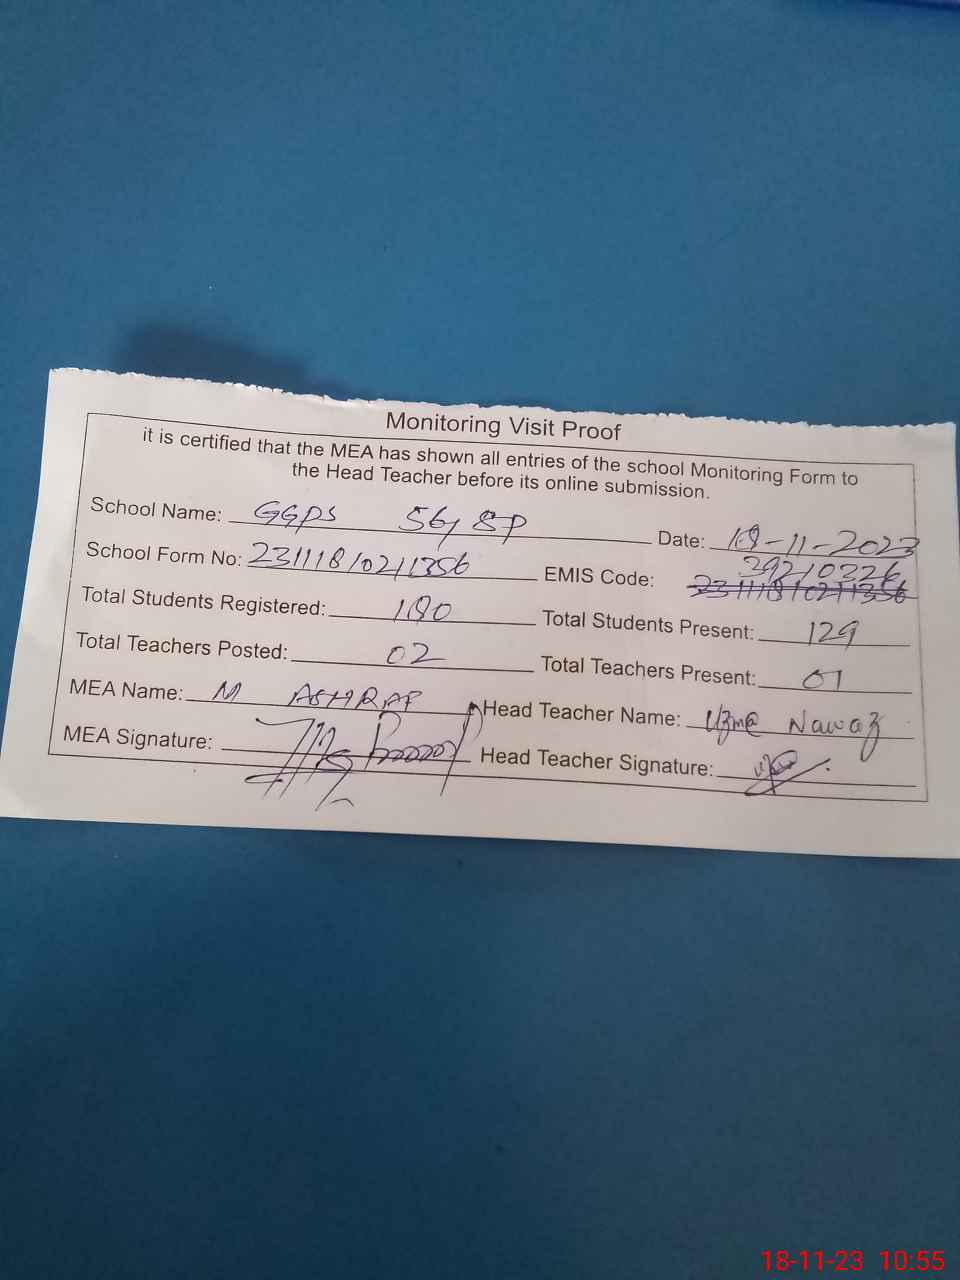 Monitoring Visit Proof
it is certified that the MEA has shown all entries of the school Monitoring Form to
the Head Teacher before its online submission.
School Name: GGPS 56/SP Date: 18-11-2023
School Form No: 231118/0211356 EMIS Code: 39210326
231118/0211356
Total Students Registered: 180 Total Students Present: 129
Total Teachers Posted: 02 Total Teachers Present: 01
MEA Name: M ASHRAF Head Teacher Name: Uzma Nawaz
MEA Signature: Head Teacher Signature:
18-11-23 10:55